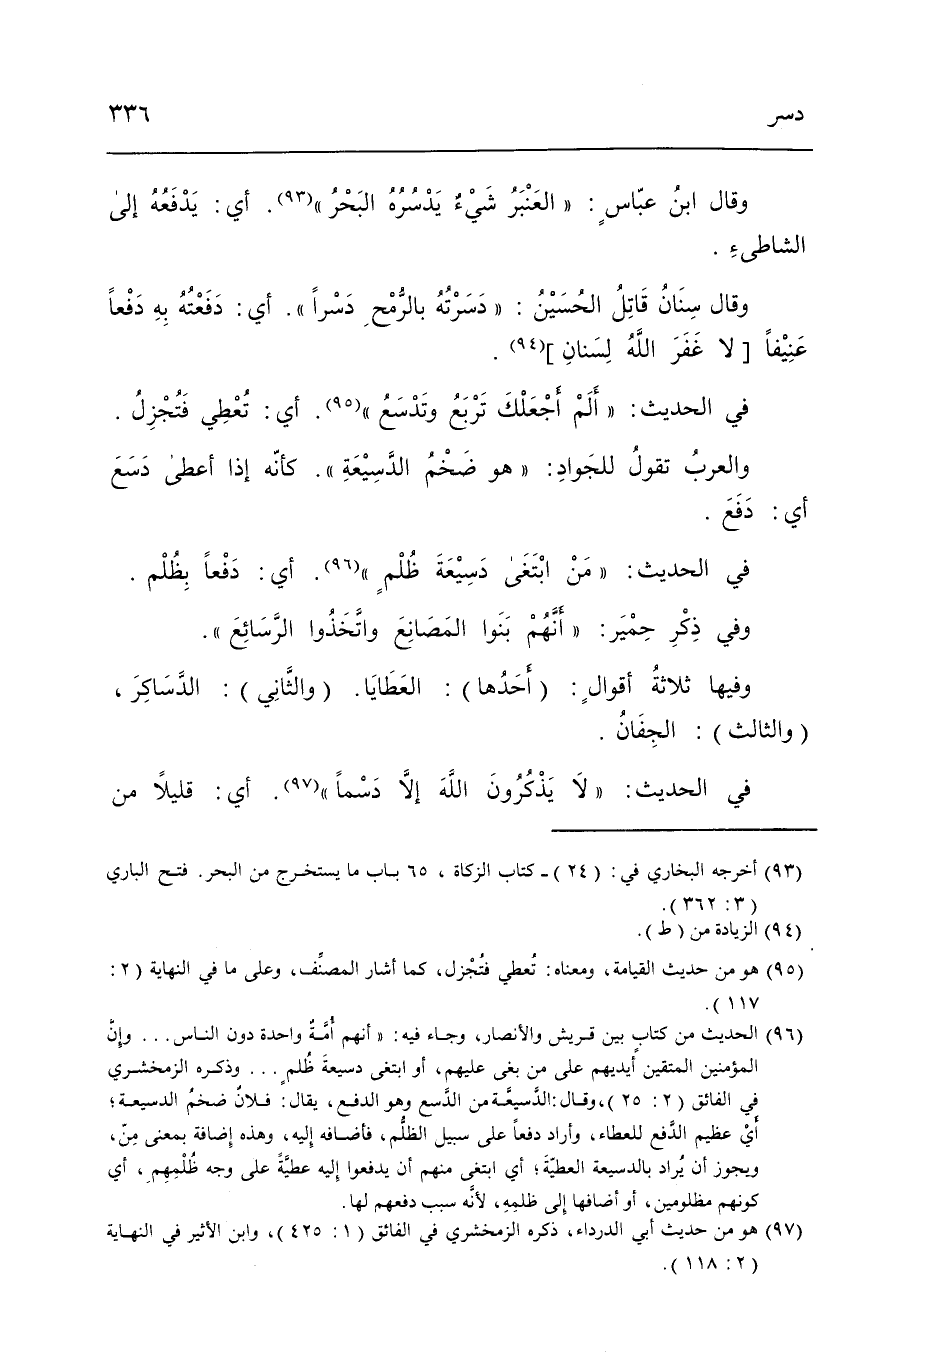 دسر
٣٣٦
وقال ابنُ عبّاسٍ : « العَنْبَرُ شَيْءٌ يَدْسُرُهُ البَحْرُ »(٩٣). أي : يَدْفَعُهُ إلىٰ
الشاطىءِ .
وقال سِنَانُ قَاتِلُ الحُسَيْنُ : « دَسَرْتُهُ بالرُّمْحِ دَسْراً ». أي : دَفَعْتُهُ بِهِ دَفْعاً
عَنِيْفاً [ لا غَفَرَ اللَّهُ لِسَنانِ ](٩٤) .
في الحديث: « أَلَمْ أَجْعَلْكَ تَرْبَعُ وتَدْسَعُ »(٩٥). أي : تُعْطِي فَتُجْزِلُ .
والعربُ تقولُ للجَوادِ: « هو ضَخْمُ الدَّسِيْعَةِ ». كأنّه إذا أعطىٰ دَسَعَ
أي : دَفَعَ .
في الحديث: « مَنْ ابْتَغَىٰ دَسِيْعَةَ ظُلْمٍ »(٩٦). أي : دَفْعاً بِظُلْم .
وفي ذِكْرِ حِمْيَر: « أَنَّهُمْ بَنَوا المَصَانِعَ واتَّخَذُوا الرَّسَائِعَ ».
وفيها ثلاثةُ أقوالٍ : ( أَحَدُها ) : العَطَايَا. ( والثَّانِي ) : الدَّسَاكِرَ ،
( والثالث ) : الجِفَانُ .
في الحديث: « لاَ يَذْكُرُونَ اللَّهَ إلَّا دَسْماً »(٩٧). أي : قليلًا من
(٩٣) أخرجه البخاري في : ( ٢٤ ) ـ كتاب الزكاة ، ٦٥ باب ما يستخرج من البحر. فتح الباري
( ٣ : ٣٦٢ ).
(٩٤) الزيادة من ( ط ).
(٩٥) هو من حديث القيامة، ومعناه: تُعطي فتُجْزل، كما أشار المصنِّف، وعلى ما في النهاية ( ٢ :
١١٧ ).
(٩٦) الحديث من كتابٍ بين قريش والأنصار، وجاء فيه: « أنهم أُمَّةٌ واحدة دون الناس... وإنَّ
المؤمنين المتقين أيديهم على من بغى عليهم، أو ابتغى دسيعةَ ظُلمٍ ... وذكره الزمخشري
في الفائق ( ٢ : ٢٥ )،وقال:الدَّسيعَّة من الدَّسع وهو الدفع، يقال: فلانٌ ضخمُ الدسيعة؛
أيْ عظيم الدَّفع للعطاء، وأراد دفعاً على سبيل الظلُّم، فأضافه إليه، وهذه إضافة بمعنى مِنّ،
ويجوز أن يُراد بالدسيعة العطيّة؛ أي ابتغى منهم أن يدفعوا إليه عطيَّةً على وجه ظُلْمِهِم ، أي
كونهم مظلومين، أو أضافها إلى ظلمِهِ، لأنَّه سبب دفعهم لها.
(٩٧) هو من حديث أبي الدرداء، ذكره الزمخشري في الفائق ( ١ : ٤٢٥ )، وابن الأثير في النهاية
( ٢ : ١١٨ ).